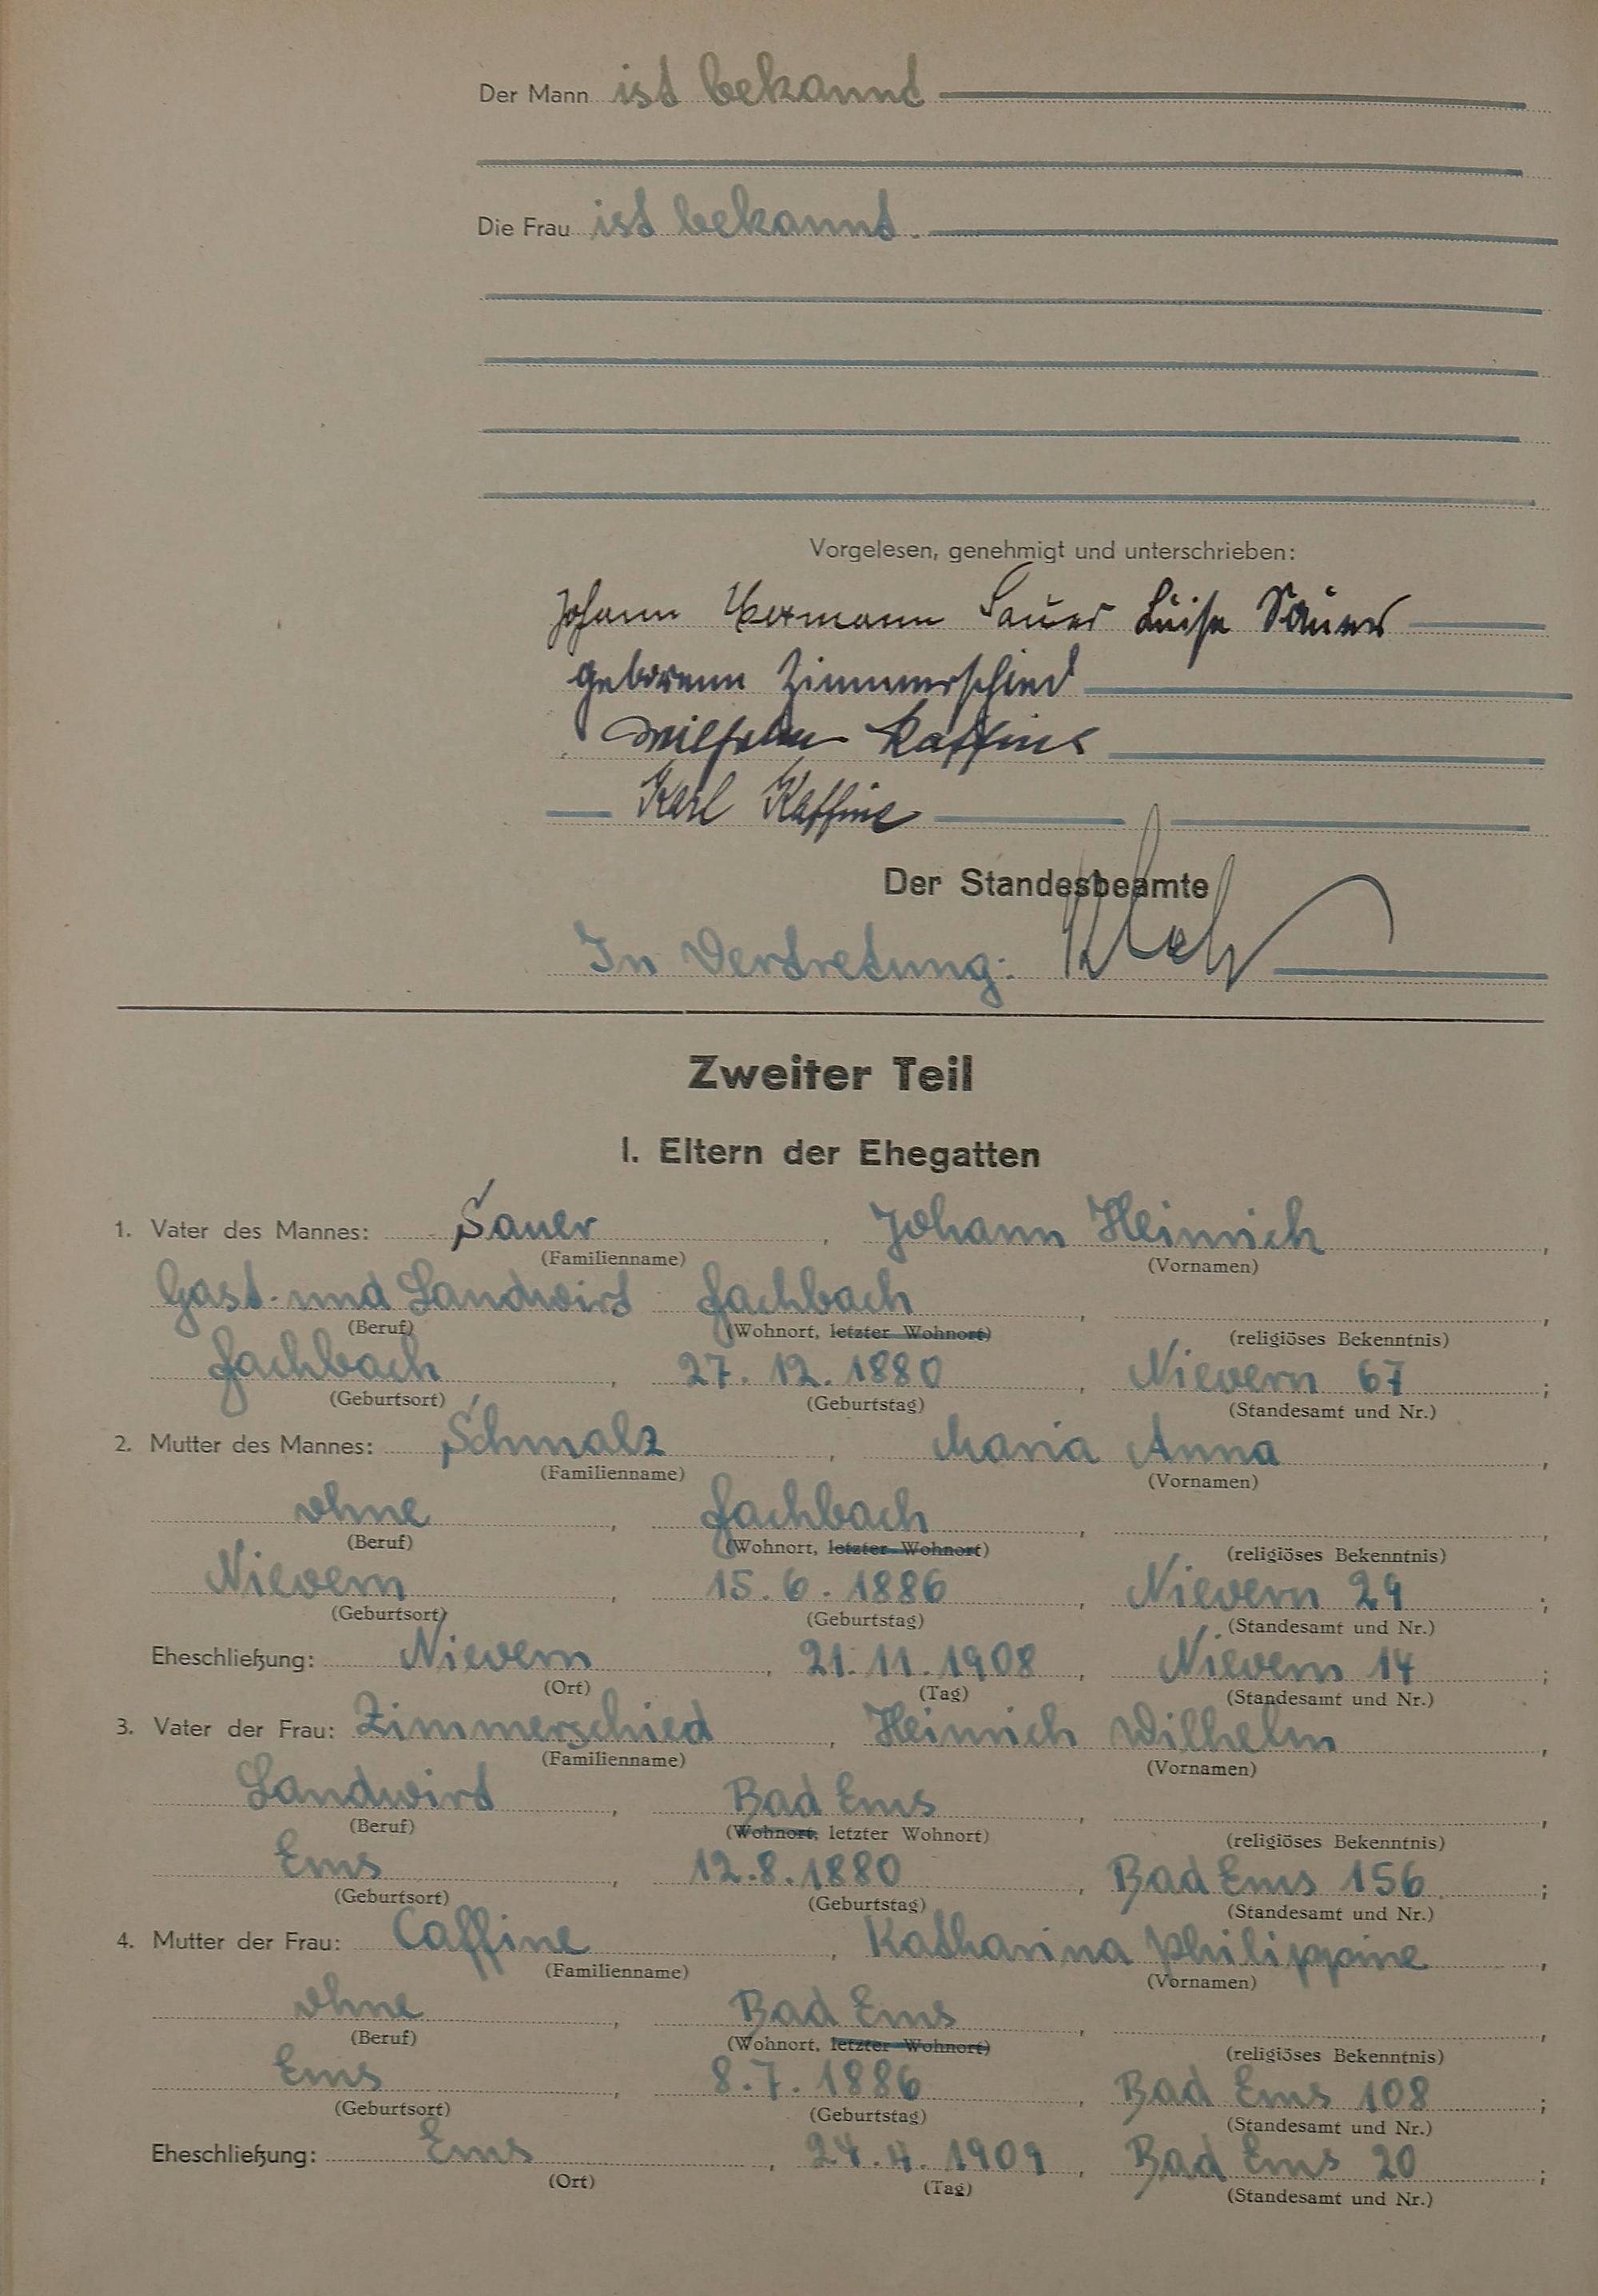 Der Mann ist bekannt
Die Frau ist bekannt.
Vorgelesen, genehmigt und unterschrieben:
Johann Hermann Sauer Luise Sauer
geborene Zimmerschied
Wilhelm Kaffine
Karl Kaffine
Der Standesbeamte
In Vertretung:
Zweiter Teil
I. Eltern der Ehegatten
1. Vater des Mannes: Sauer, Johann Heinrich,
(Familienname) (Vornamen)
Gast- und Landwirt Fachbach, ,
(Beruf) (Wohnort, letzter Wohnort) (religiöses Bekenntnis)
Fachbach, 27. 12. 1880, Nievern 67;
(Geburtsort) (Geburtstag) (Standesamt und Nr.)
2. Mutter des Mannes: Schmalz, Maria Anna,
(Familienname) (Vornamen)
ohne, Fachbach, ,
(Beruf) (Wohnort, letzter Wohnort) (religiöses Bekenntnis)
Nievern, 15. 6. 1886, Nievern 29;
(Geburtsort) (Geburtstag) (Standesamt und Nr.)
Eheschließung: Nievern, 21. 11. 1908, Nievern 14;
(Ort) (Tag) (Standesamt und Nr.)
3. Vater der Frau: Zimmerschied, Heinrich Wilhelm,
(Familienname) (Vornamen)
Landwirt, Bad Ems, ,
(Beruf) (Wohnort, letzter Wohnort) (religiöses Bekenntnis)
Ems, 12. 8. 1880, Bad Ems 156;
(Geburtsort) (Geburtstag) (Standesamt und Nr.)
4. Mutter der Frau: Caffine, Katharina Philippine,
(Familienname) (Vornamen)
ohne, Bad Ems, ,
(Beruf) (Wohnort, letzter Wohnort) (religiöses Bekenntnis)
Ems, 8. 7. 1886, Bad Ems 108;
(Geburtsort) (Geburtstag) (Standesamt und Nr.)
Eheschließung: Ems, 24. 4. 1909, Bad Ems 20;
(Ort) (Tag) (Standesamt und Nr.)